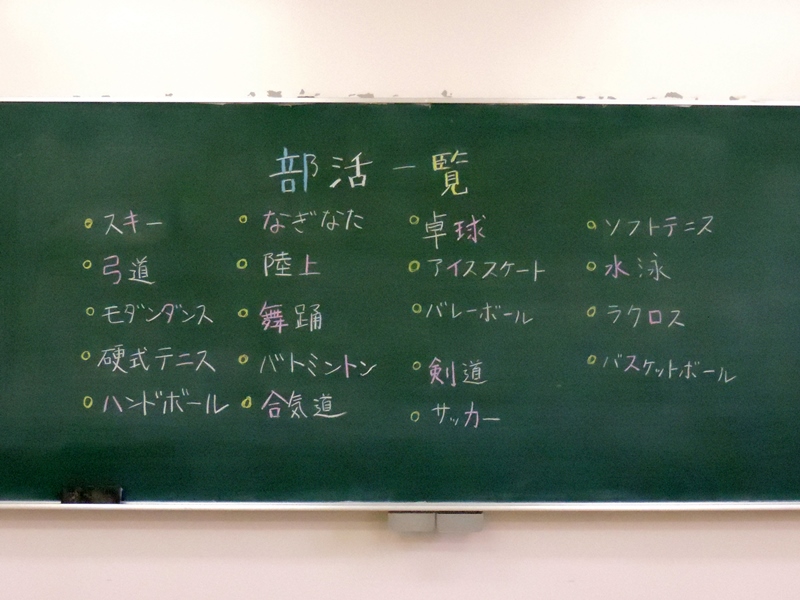 部活一覧
スキー
弓道
モダンダンス
硬式テニス
ハンドボール
なぎなた
陸上
舞踊
バトミントン
合気道
卓球
アイススケート
バレーボール
剣道
サッカー
ソフトテニス
水泳
ラクロス
バスケットボール